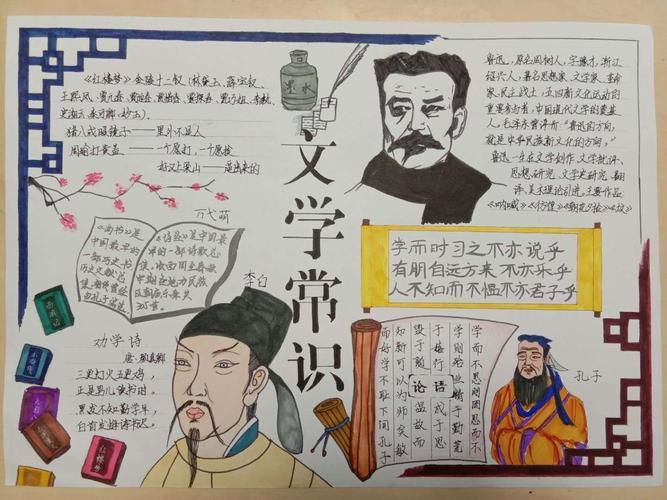 文学常识
墨水
《红楼梦》金陵十二钗(林黛玉、薛宝钗、
王熙凤、贾元春、贾迎春、贾惜春、贾探春、贾巧姐、李纨、
史湘云、秦可卿、妙玉)。
猪八戒照镜子——里外不是人
周瑜打黄盖——一个愿打,一个愿挨
好汉上梁山——逼出来的
鲁迅,原名周树人,字豫才,浙江
绍兴人,著名思想家、文学家、革命
家、民主战士,五四新文化运动的
重要参与者,中国现代文学的奠基
人,毛泽东曾评价"鲁迅的方向,
就是中华民族新文化的方向。"
鲁迅一生在文学创作、文学批评、
思想研究、文学史研究、翻
译、美术理论引进,主要作品
《呐喊》《彷徨》《朝花夕拾》《坟》
《尚书》是
中国最早的
一部历史书
《诗经》是中国最
早的一部诗歌总
305首。
李白
学而时习之不亦说乎
有朋自远方来 不亦乐乎
人不知而不愠不亦君子乎
劝学诗
唐·颜真卿
三更灯火五更鸡,
正是男儿读书时。
黑发不知勤学早,
白首方悔读书迟。
红楼梦
论语
学而不思则罔思而不
学则殆业精于勤荒
于嬉行成于思
毁于随
温故而
知新可以为师矣敏
而好学不耻下问孔子
孔子